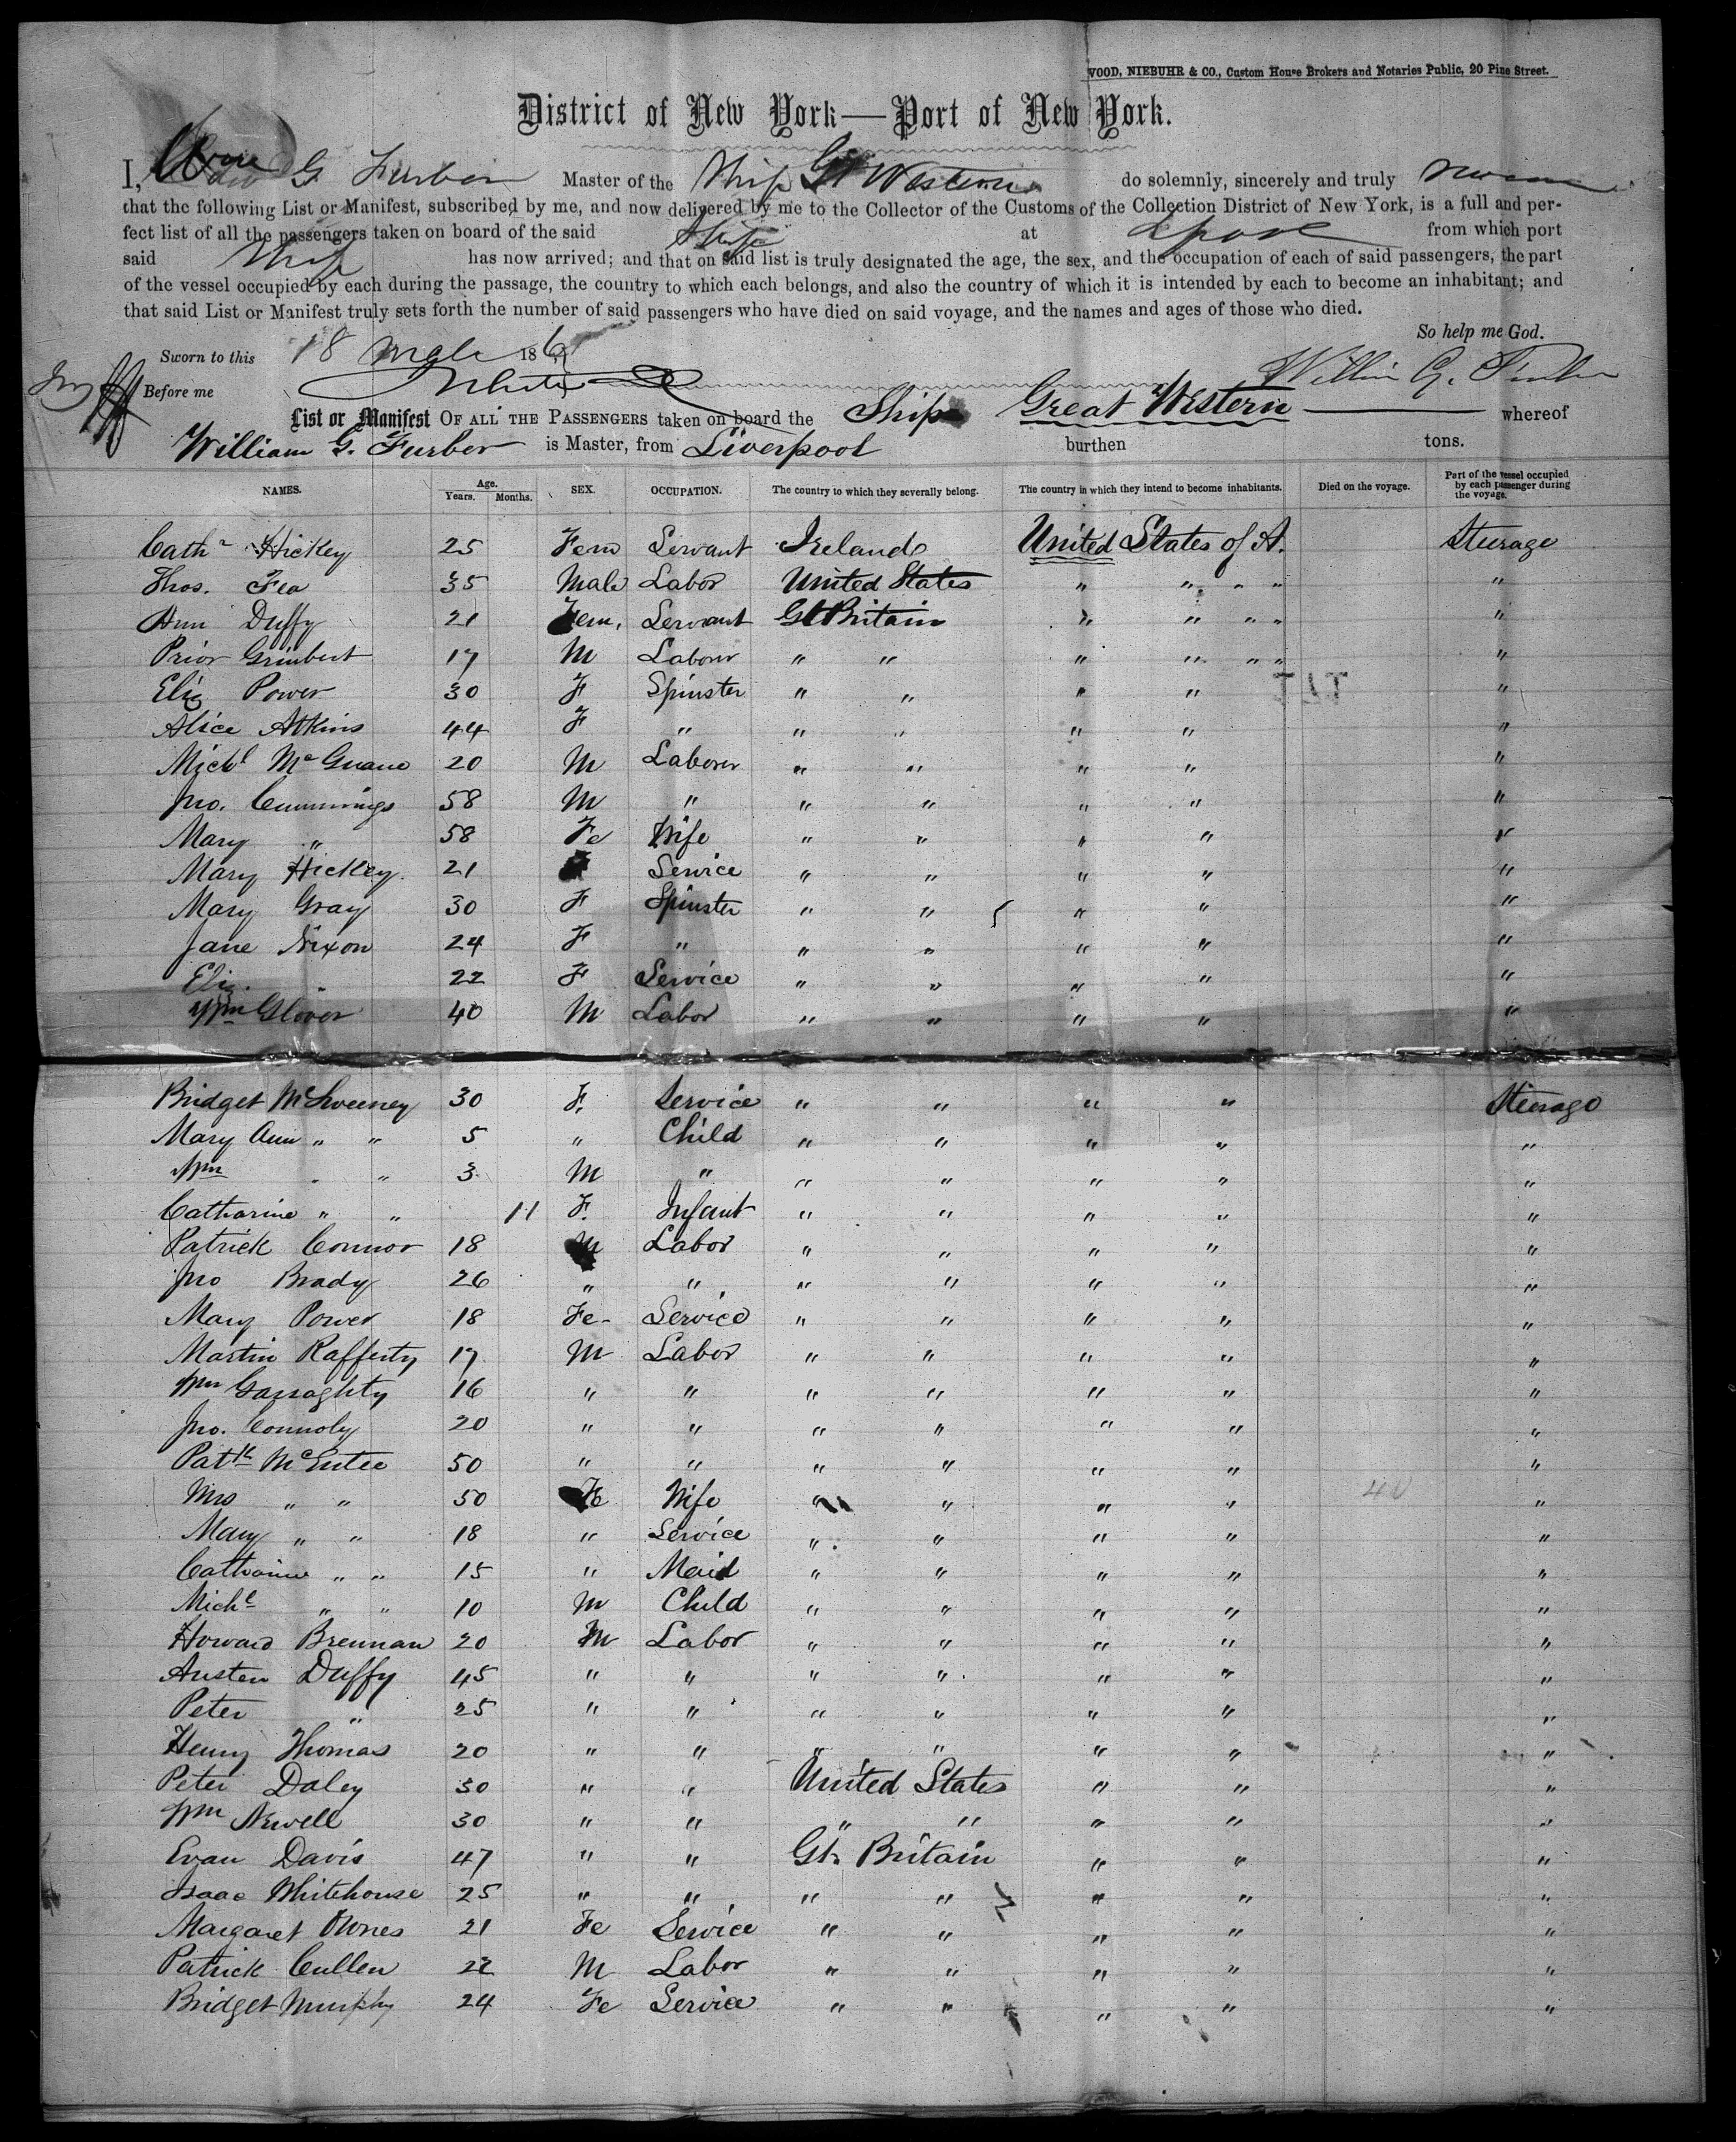 WOOD, NIEBUHR & CO., Custom House Brokers and Notaries Public, 20 Pine Street.
District of New York—Port of New York.
I, Wm G. Furber Master of the Ship Gt Western do solemnly, sincerely and truly swear
that the following List or Manifest, subscribed by me, and now delivered by me to the Collector of the Customs of the Collection District of New York, is a full and per-
fect list of all the passengers taken on board of the said Ship at Lpool from which port
said Ship has now arrived; and that on said list is truly designated the age, the sex, and the occupation of each of said passengers, the part
of the vessel occupied by each during the passage, the country to which each belongs, and also the country of which it is intended by each to become an inhabitant; and
that said List or Manifest truly sets forth the number of said passengers who have died on said voyage, and the names and ages of those who died.
So help me God.
Sworn to this 18 186
Before me William G. Furber
List or Manifest OF ALL THE PASSENGERS taken on board the Ship Great Western whereof
William G. Furber is Master, from Liverpool burthen tons.
NAMES. Age. Years. Months. SEX. OCCUPATION. The country to which they severally belong. The country in which they intend to become inhabitants. Died on the voyage. Part of the vessel occupied by each passenger during the voyage.
Cathr Hickey 25 Fem Servant Ireland United States of A. Steerage
Thos. Fea 35 Male Labor United States " " " " "
Ann Duffy 21 Fem. Servant Gt Britain " " " " "
Prior Grimbert 17 M Laborer " " " " " " "
Eliz Power 30 F Spinster " " " " "
Alice Atkins 44 F " " " " " "
Michl McGuane 20 M Laborer " " " " "
Jno. Cummings 58 M " " " " " "
Mary " 58 Fe Wife " " " " "
Mary Hickey 21 F Service " " " " "
Mary Gray 30 F Spinster " " " " "
Jane Nixon 24 F " " " " " "
Eliz. " 22 F Service " " " " "
Wm Glover 40 M Labor " " " " "
Bridget McSweeney 30 F. Service " " " " Steerage
Mary Ann " " 5 " Child " " " " "
Wm " " 3 M " " " " " "
Catharine " " 11 F. Infant " " " " "
Patrick Connor 18 M Labor " " " " "
Jno Brady 26 " " " " " " "
Mary Power 18 Fe- Service " " " " "
Martin Rafferty 17 M Labor " " " " "
Wm Garraghty 16 " " " " " " "
Jno. Connoly 20 " " " " " " "
Patk McEntee 50 " " " " " " "
Mrs " " 50 Fe Wife " " " " 40 "
Mary " " 18 " Service " " " " "
Catharine " " 15 " Maid " " " " "
Michl " " 10 M Child " " " " "
Howard Brennan 20 M Labor " " " " "
Austen Duffy 45 " " " " " " "
Peter " 25 " " " " " " "
Henry Thomas 20 " " " " " " "
Peter Daley 30 " " United States " " "
Wm Newell 30 " " " " " " "
Evan Davis 47 " " Gt. Britain " " "
Isaac Whitehouse 25 " " " " " " "
Margaret Ownes 21 Fe Service " " " " "
Patrick Cullen 22 M Labor " " " " "
Bridget Murphy 24 Fe Service " " " " "